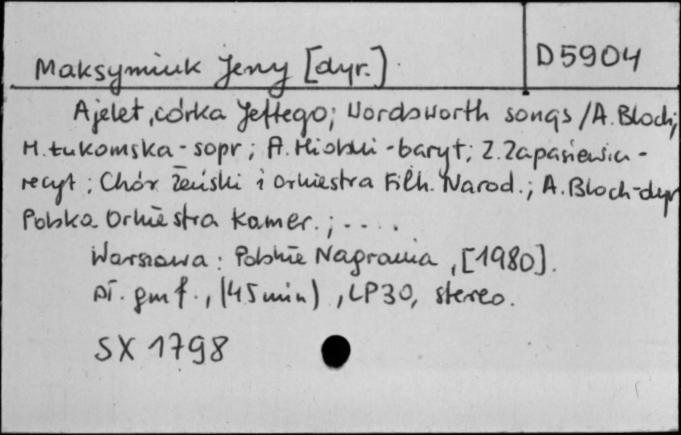 Maksymiuk Jerzy [dyr.]
D 5904
Ajelet, córka Jeftego; Wordsworth songs / A. Bloch;
H. Łukomska - sopr; A. Hiolski - baryt; Z. Zapasiewicz -
recyt; Chór Żeński i Orkiestra Filh. Narod.; A. Bloch - dyr
Polska Orkiestra Kamer.; - . . .
Warszawa: Polskie Nagrania, [1980].
pł. gmf., (45 min), LP30, stereo.
SX 1798